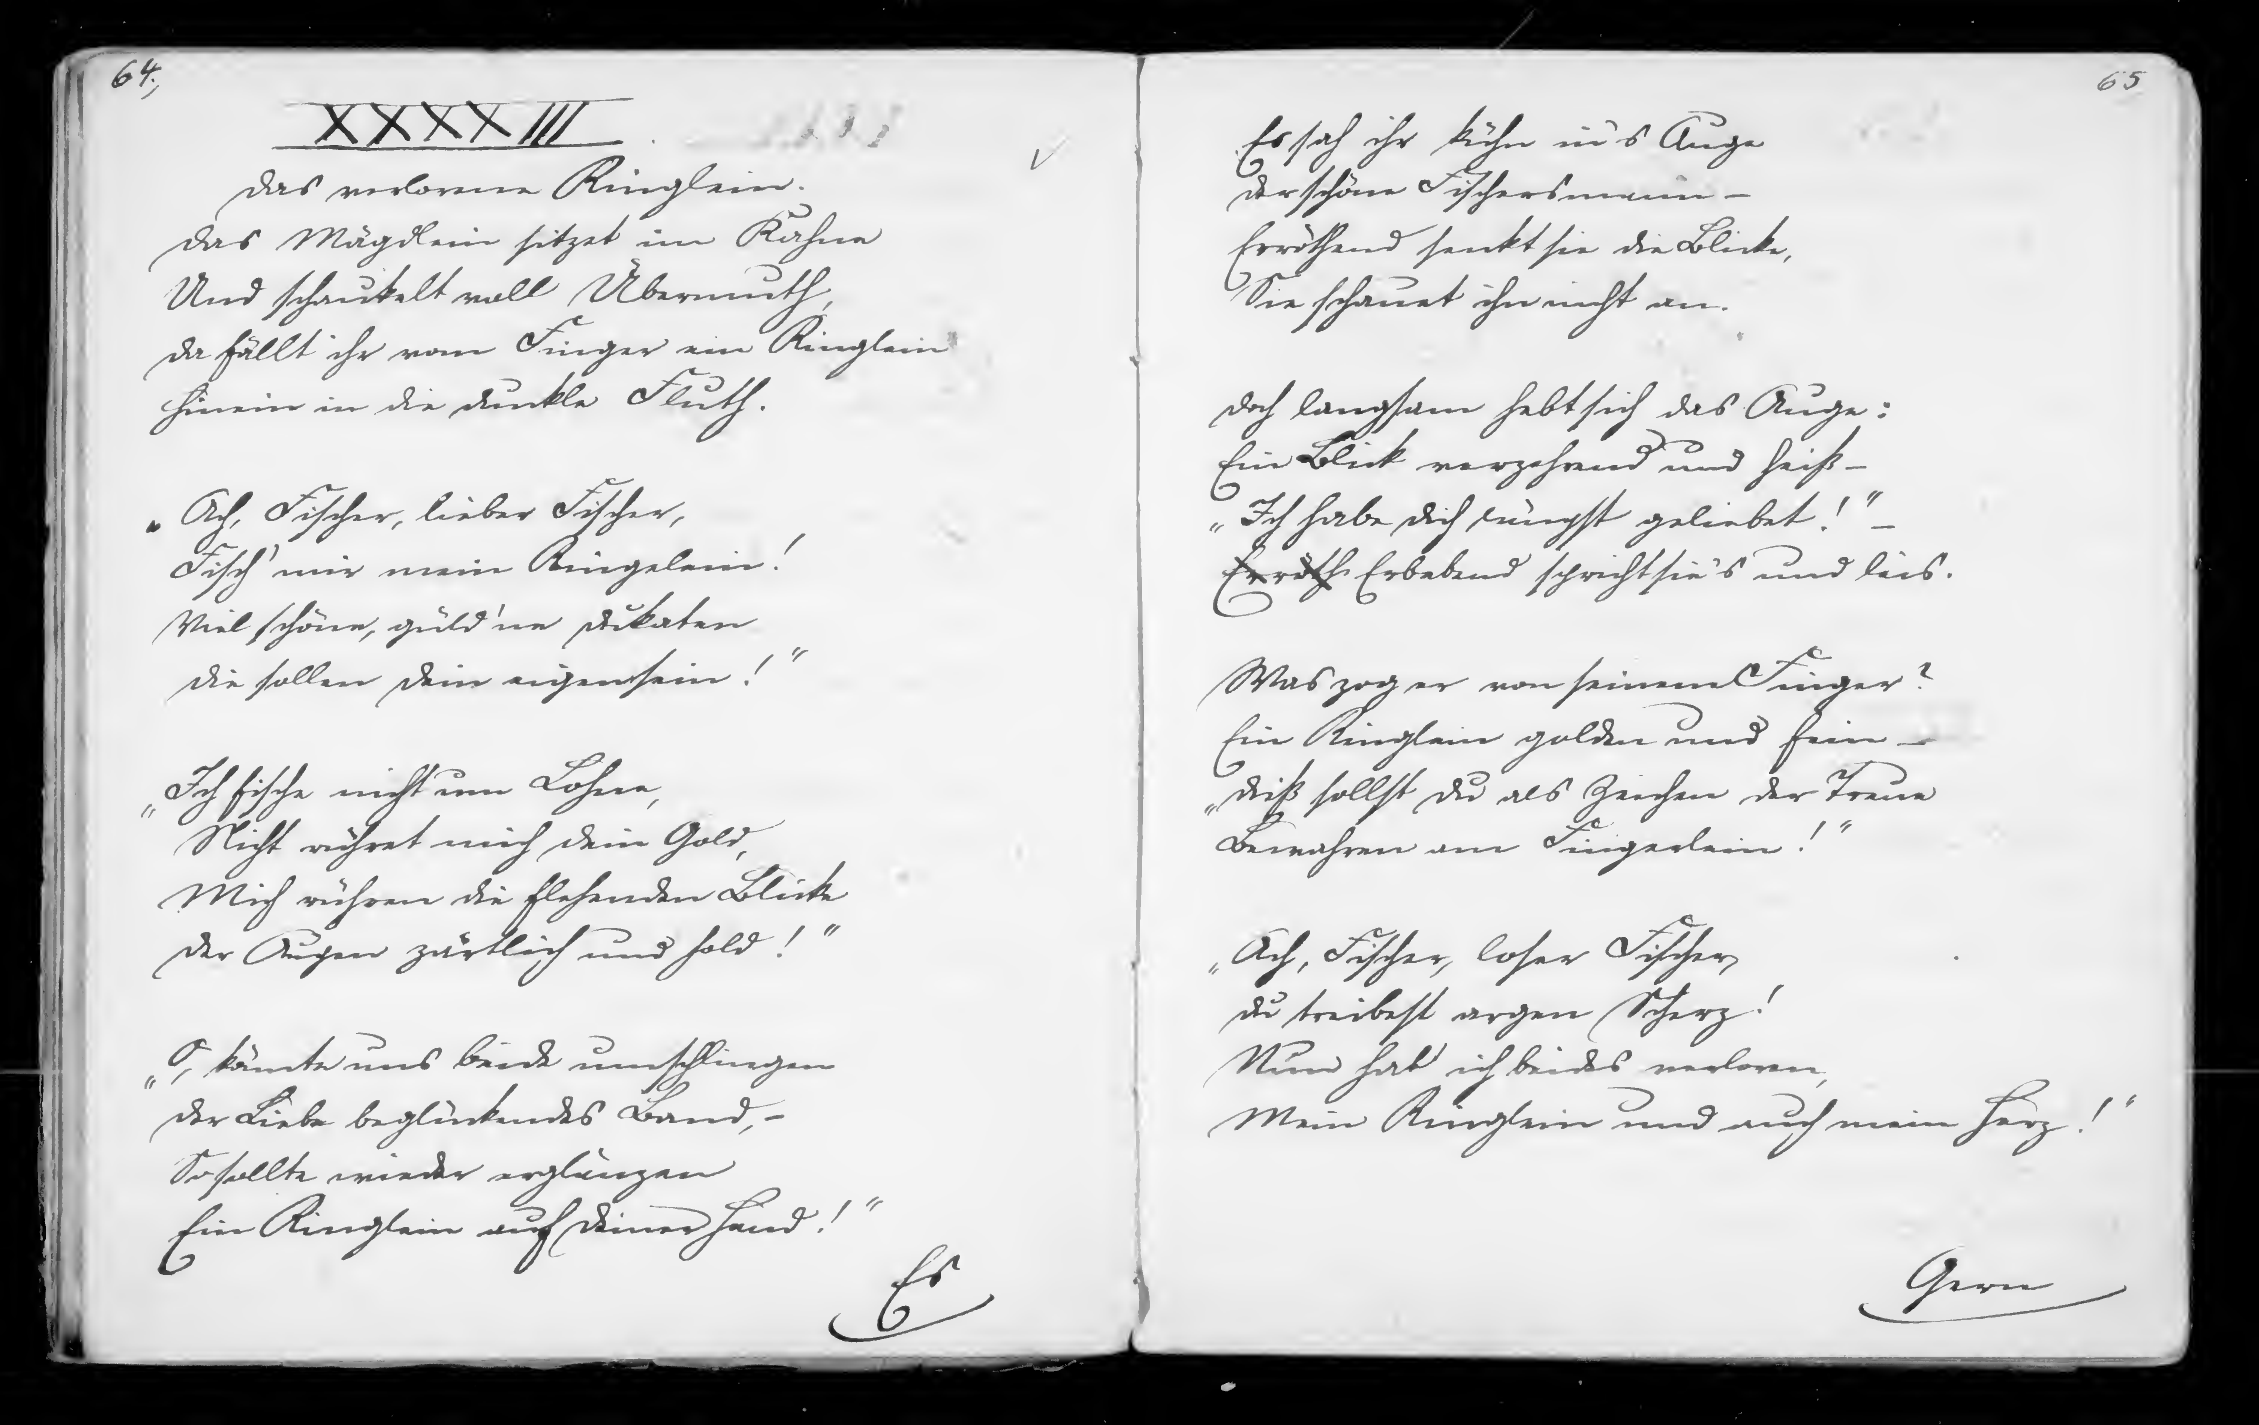 64.,
XXXXIII
Das verlorene Ringlein.
Das Mägdlein sitzet im Kahne
Und schaukelt voll Übermuth,
Da fällt ihr vom Finger ein Ringlein
Hinein in die dunkle Fluth.
„Ach, Fischer, lieber Fischer,
Fisch' mir mein Ringelein!
Viel schöne, güld'ne Dukaten
Die sollen dein eigen sein!"
„Ich fische nicht um Lohne,
Nicht rühret mich dein Gold,
Mich rühren die flehenden Blicke
Der Augen zärtlich und hold!"
„O, könnte uns beide umschlingen
Der Liebe beglückendes Band, -
So sollte wieder erglänzen
Ein Ringlein auf deiner Hand!"
Es
65
Es sah ihr kühn in's Auge
Der schöne Fischersmann –
Erröthend senkt sie die Blicke,
Sie schauet ihn nicht an.
Doch langsam hebt sich das Auge:
Ein Blick verzehrend und heiß –
„Ich habe dich längst geliebet!" –
Erröth Erbebend spricht sie's und leis.
Was zog er von seinem Finger?
Ein Ringlein golden und fein –
„Diß sollst du als Zeichen der Treue
Bewahren am Fingerlein!"
„Ach, Fischer, loser Fischer,
Du treibest argen Scherz!
Nun hab' ich beides verloren,
Mein Ringlein und auch mein Herz!"
Gern